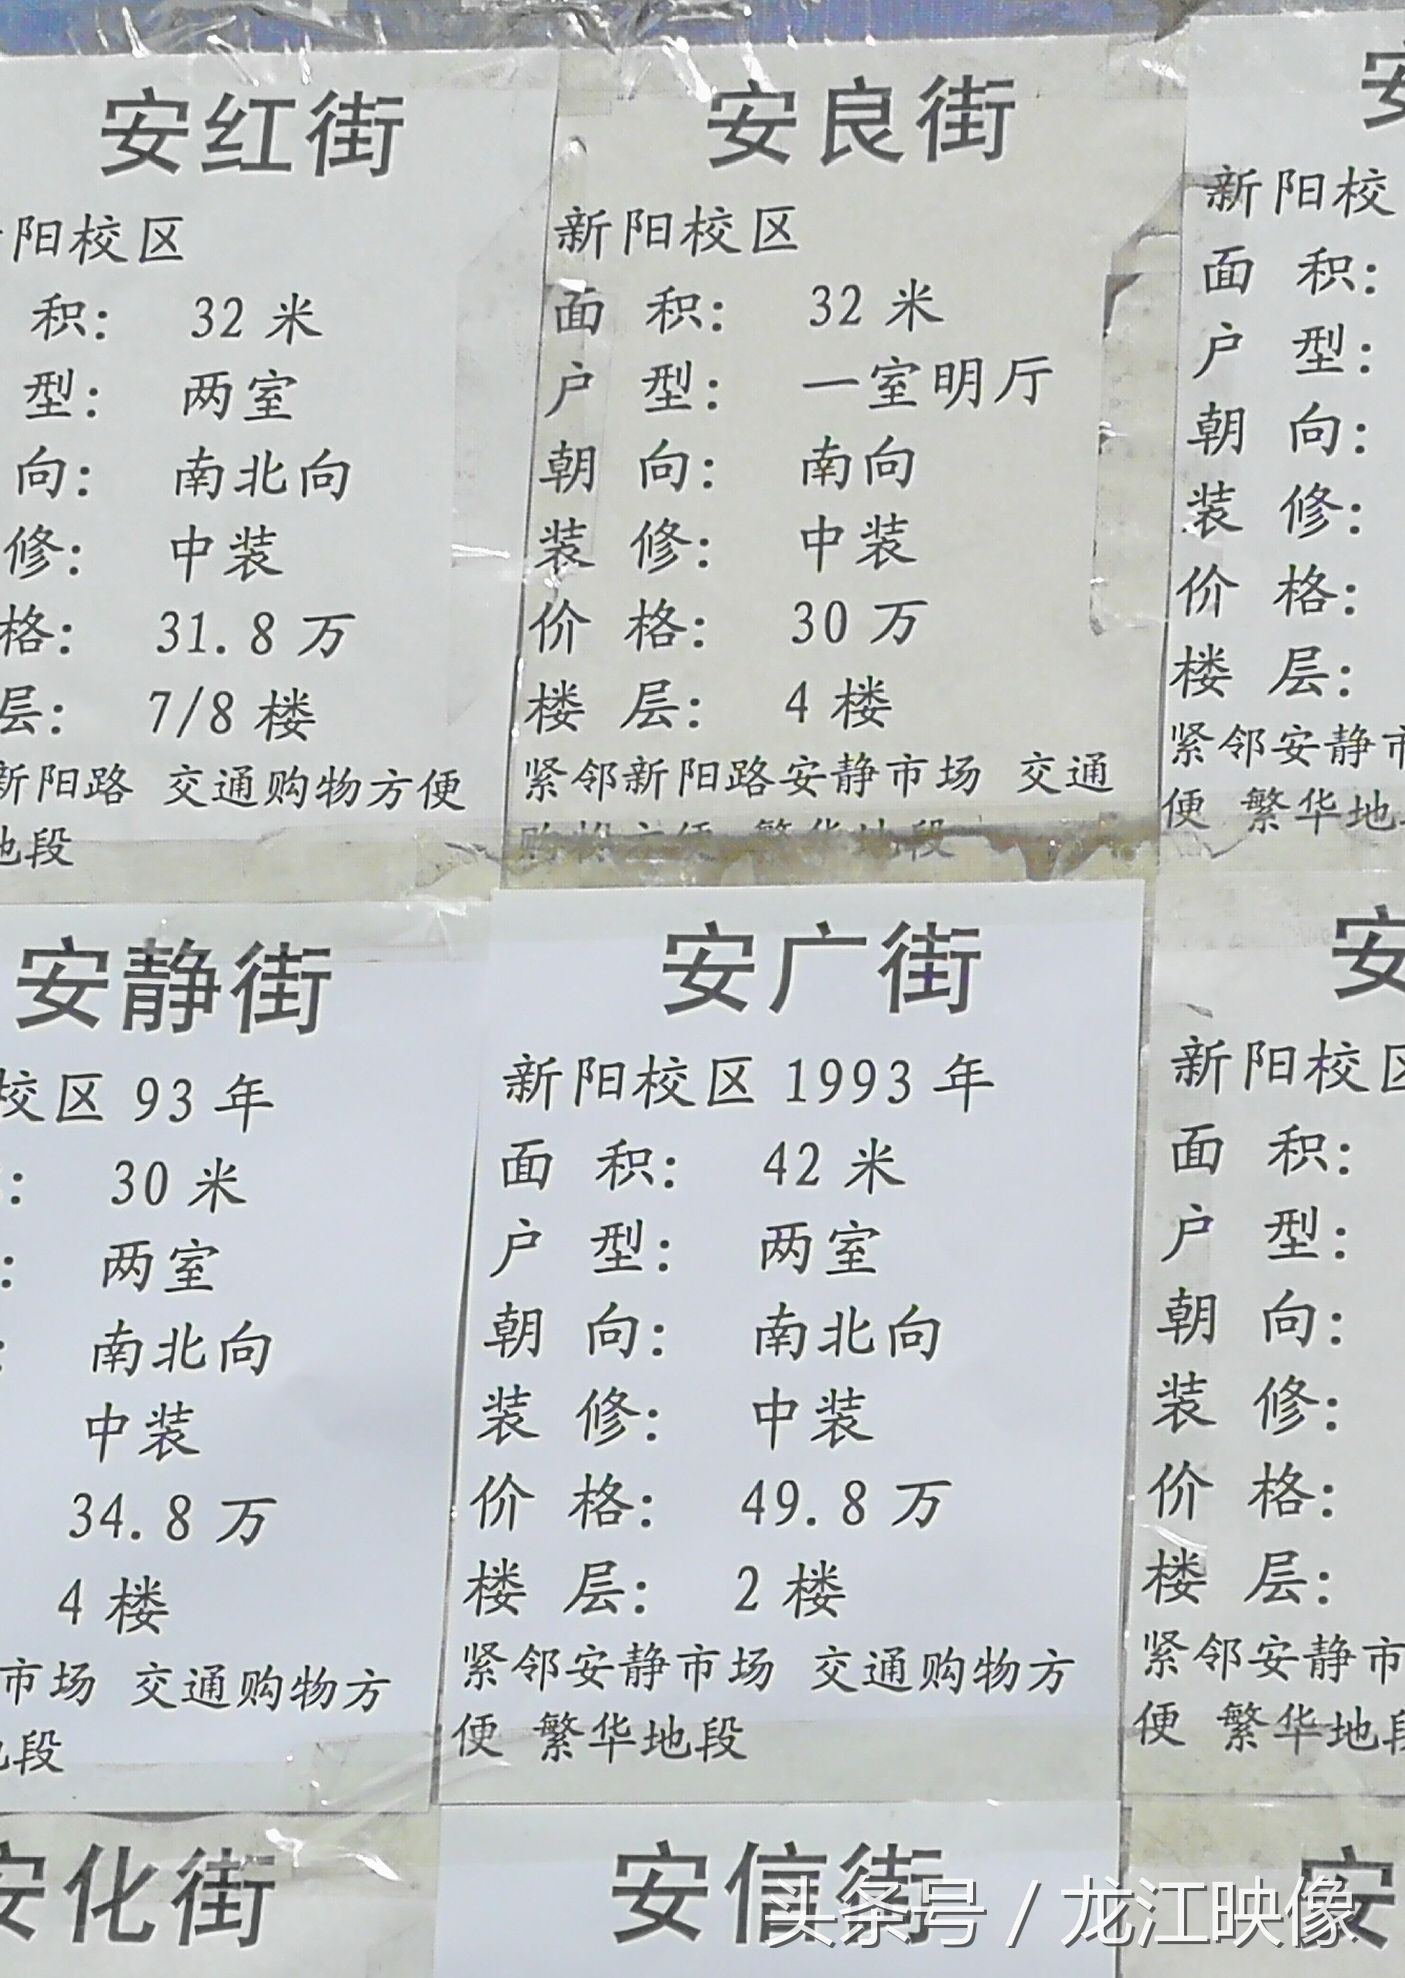 安红街
阳校区
积： 32 米
型： 两室
向： 南北向
修： 中装
格： 31.8 万
层： 7/8 楼
新阳路 交通购物方便
地段
安良街
新阳校区
面 积： 32 米
户 型： 一室明厅
朝 向： 南向
装 修： 中装
价 格： 30 万
楼 层： 4 楼
紧邻新阳路安静市场 交通
购物方便 繁华地段
安
新阳校
面 积：
户 型：
朝 向：
装 修：
价 格：
楼 层：
紧邻安静市
便 繁华地
安静街
校区 93 年
： 30 米
： 两室
： 南北向
中装
34.8 万
4 楼
市场 交通购物方
地段
安广街
新阳校区 1993 年
面 积： 42 米
户 型： 两室
朝 向： 南北向
装 修： 中装
价 格： 49.8 万
楼 层： 2 楼
紧邻安静市场 交通购物方
便 繁华地段
安
新阳校区
面 积：
户 型：
朝 向：
装 修：
价 格：
楼 层：
紧邻安静市
便 繁华地段
安化街
安信街
安
头条号 / 龙江映像